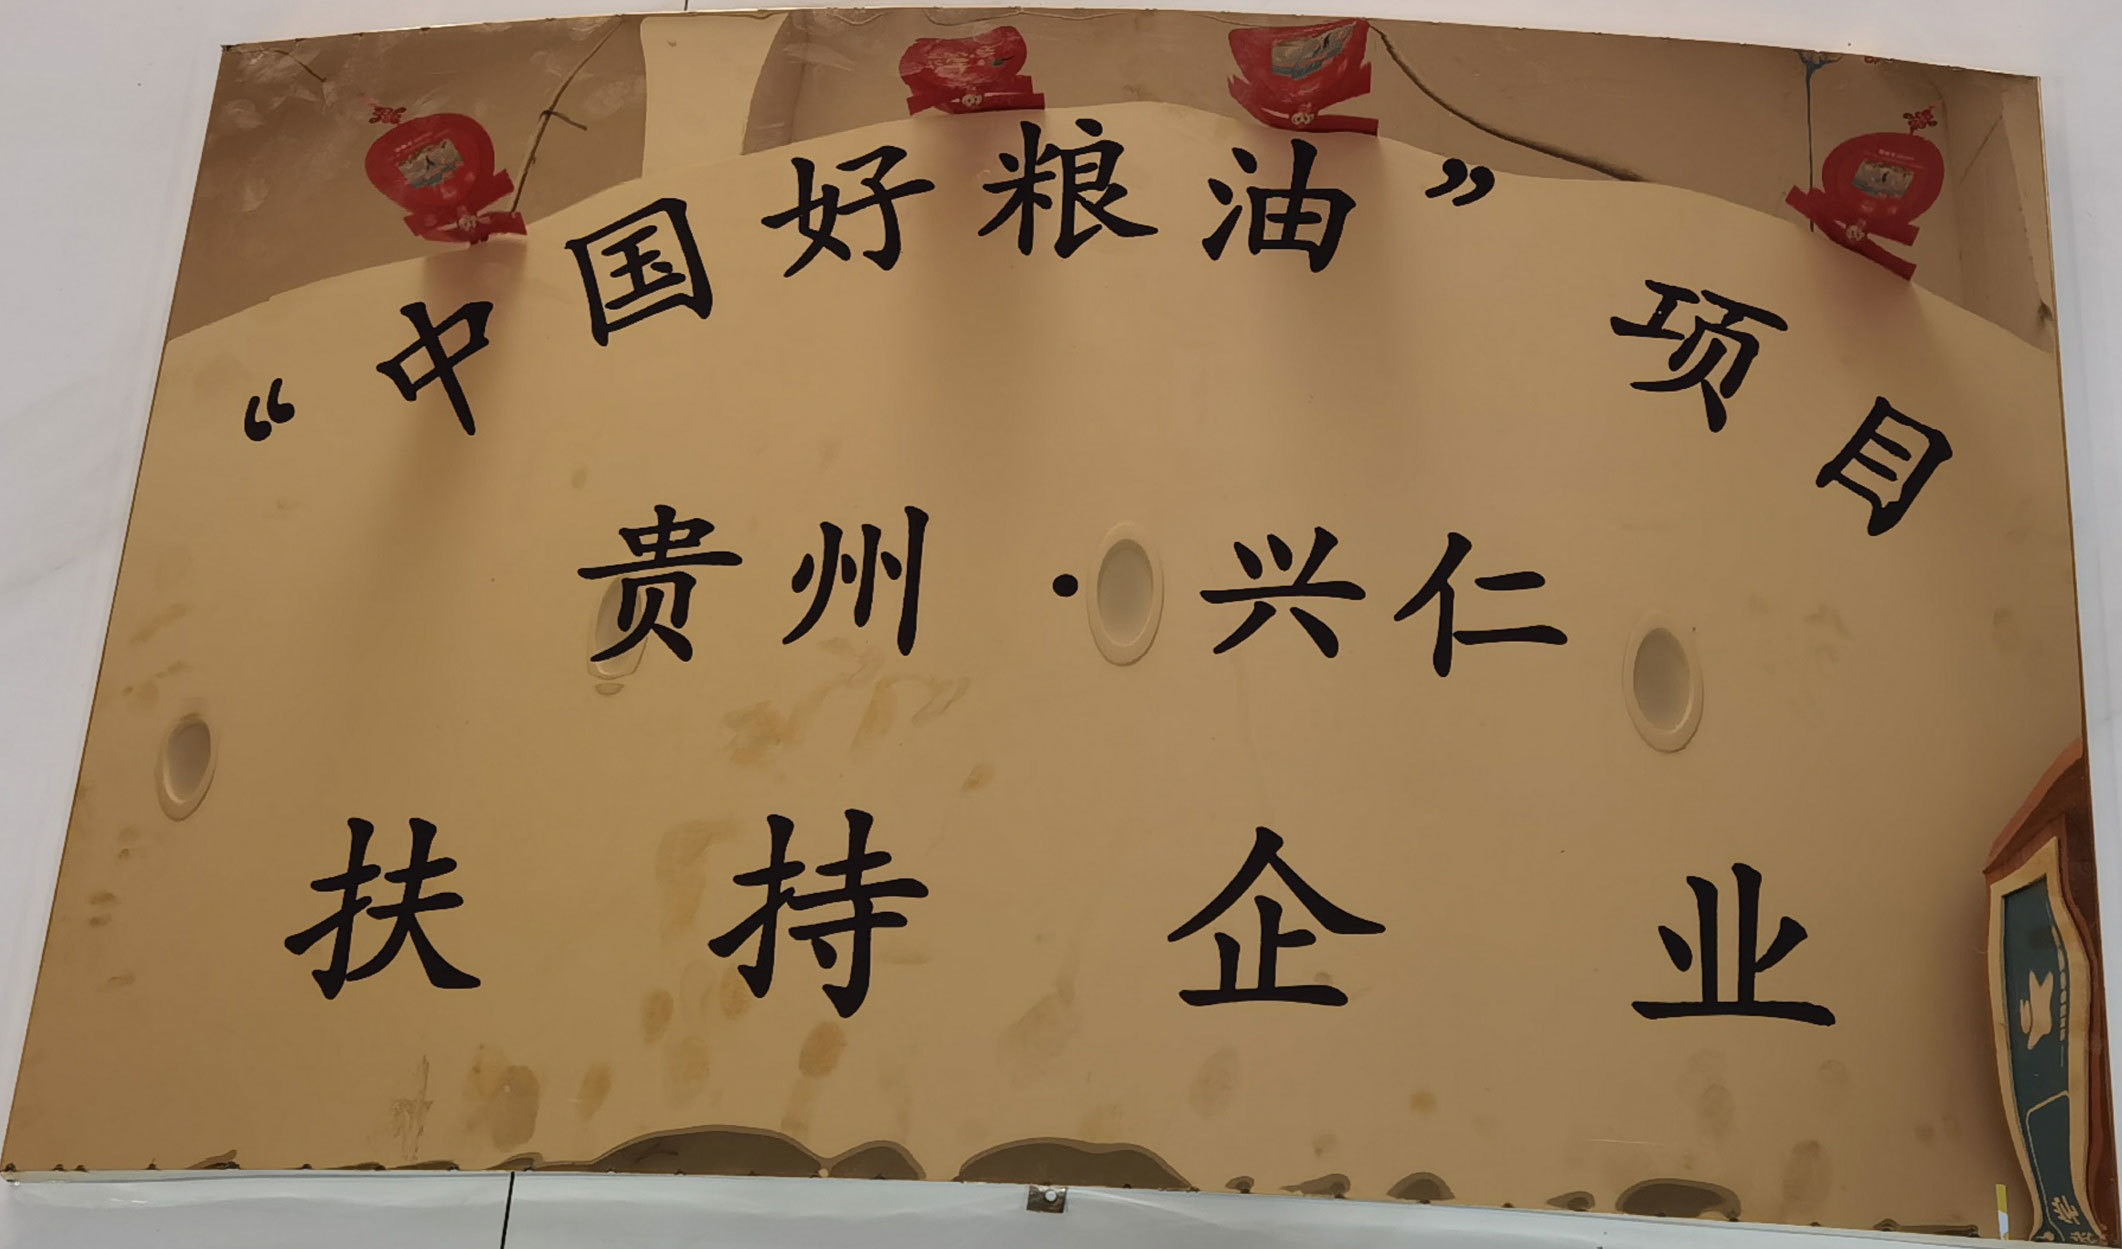 “中国好粮油”项目
贵州·兴仁
扶持企业